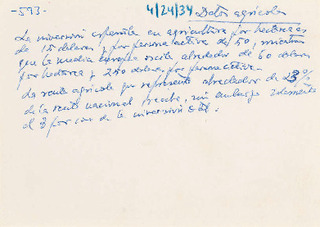 -593- 4/24/34 Datos agrícolas
La inversión española en agricultura por hectárea es
de 15 dólares y por persona activa de 50, mientras
que la media europea oscila alrededor de 60 dólares
por hectárea y 250 dólares por persona activa.
La renta agrícola que representa alrededor de 23%
de la renta nacional recibe, sin embargo
el 8 por cien de la inversión